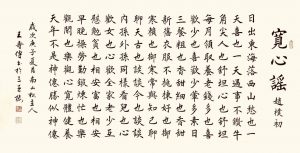 寬心謠 趙樸初
日出東海落西山愁也一
天喜也一天遇事不鑽牛
角尖人也舒坦心也舒坦
每月領取養老錢多也喜
歡少也喜歡少葷多素日
三餐粗也香甜細也香甜
新舊衣服不挑揀好也御
寒賴也御寒常與知己聊
聊天古也談談今也談談
內孫外孫同樣看兒也心
歡女也心歡全家老少互
慰勉貧也相安富也相安
早晚操勞勤鍛煉忙也樂
觀閑也樂觀心寬體健養
天年不是神仙勝似神仙
歲次庚子夏月南山松主人